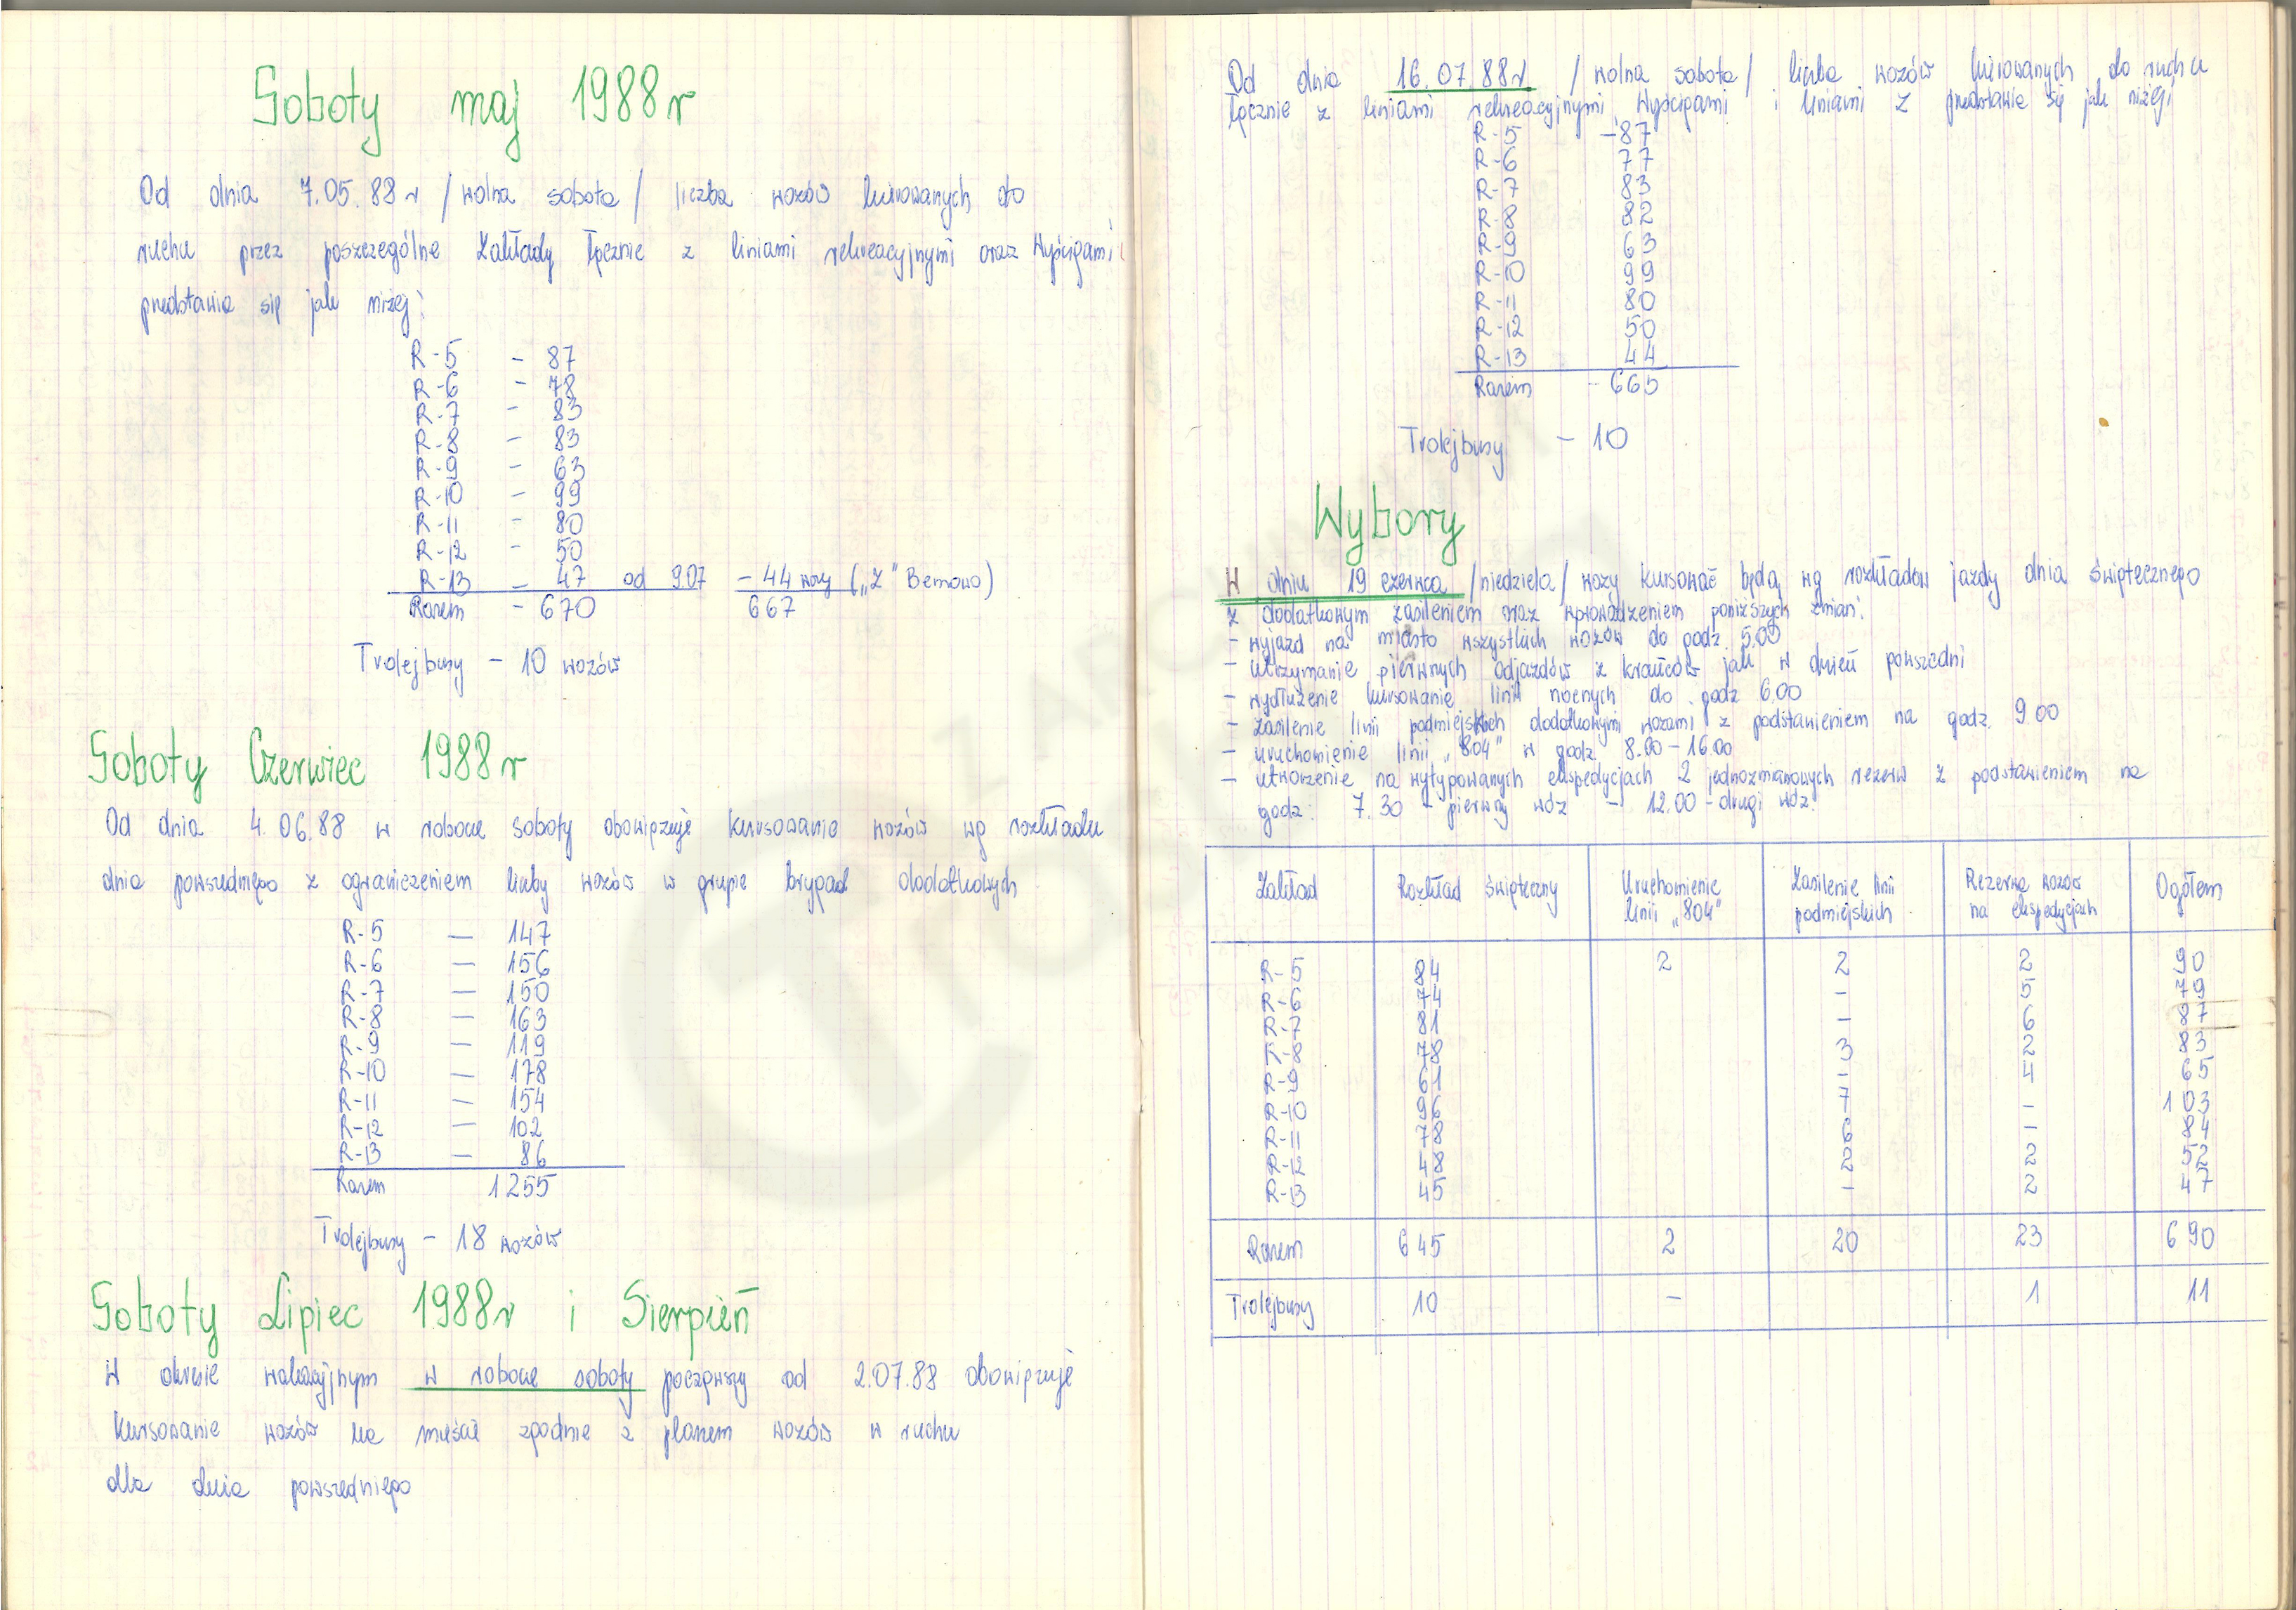 Soboty maj 1988r
Od dnia 7.05.88r /wolna sobota/ liczba wozów kierowanych do
ruchu przez poszczególne Zakłady łącznie z liniami rekreacyjnymi oraz Wyścigami
przedstawia się jak niżej:
R-5 - 87
R-6 - 78
R-7 - 83
R-8 - 83
R-9 - 63
R-10 - 99
R-11 - 80
R-12 - 50
R-13 - 47 od 9.07 - 44 wozy („Z" Bemowo)
Razem - 670 667
Trolejbusy - 10 wozów
Soboty Czerwiec 1988r
Od dnia 4.06.88 w robocze soboty obowiązuje kursowanie wozów wg rozkładu
dnia powszedniego z ograniczeniem liczby wozów w grupie brygad dodatkowych
R-5 — 147
R-6 — 156
R-7 — 150
R-8 — 163
R-9 — 119
R-10 — 178
R-11 — 154
R-12 — 102
R-13 — 86
Razem 1255
Trolejbusy - 18 wozów
Soboty Lipiec 1988r i Sierpień
W okresie wakacyjnym w robocze soboty począwszy od 2.07.88 obowiązuje
kursowanie wozów na mieście zgodnie z planem wozów w ruchu
dla dnia powszedniego
Od dnia 16.07.88r /wolna sobota/ liczba wozów kierowanych do ruchu
łącznie z liniami rekreacyjnymi, Wyścigami i liniami Z przedstawia się jak niżej:
R-5 - 87
R-6 77
R-7 83
R-8 82
R-9 63
R-10 99
R-11 80
R-12 50
R-13 44
Razem - 665
Trolejbusy - 10
Wybory
W dniu 19 czerwca /niedziela/ wozy kursować będą wg rozkładów jazdy dnia świątecznego
z dodatkowym zasileniem oraz wprowadzeniem poniższych zmian:
- wyjazd na miasto wszystkich wozów do godz. 5.00
- utrzymanie pierwszych odjazdów z krańców jak w dzień powszedni
- wydłużenie kursowanie linii nocnych do godz 6.00
- zasilenie linii podmiejskich dodatkowymi wozami z podstawieniem na godz. 9.00
- uruchomienie linii „804" w godz. 8.00-16.00
- utworzenie na wytypowanych ekspedycjach 2 jednozmianowych rezerw z podstawieniem na
godz: 7.30 - pierwszy wóz - 12.00 - drugi wóz.
Zakład Rozkład świąteczny Uruchomienie linii „804" Zasilenie linii podmiejskich Rezerwa wozów na ekspedycjach Ogółem
R-5 84 2 2 2 90
R-6 74 - 5 79
R-7 81 - 6 87
R-8 78 3 2 83
R-9 61 - 4 65
R-10 96 7 - 103
R-11 78 6 - 84
R-12 48 2 2 52
R-13 45 - 2 47
Razem 645 2 20 23 690
Trolejbusy 10 - 1 11